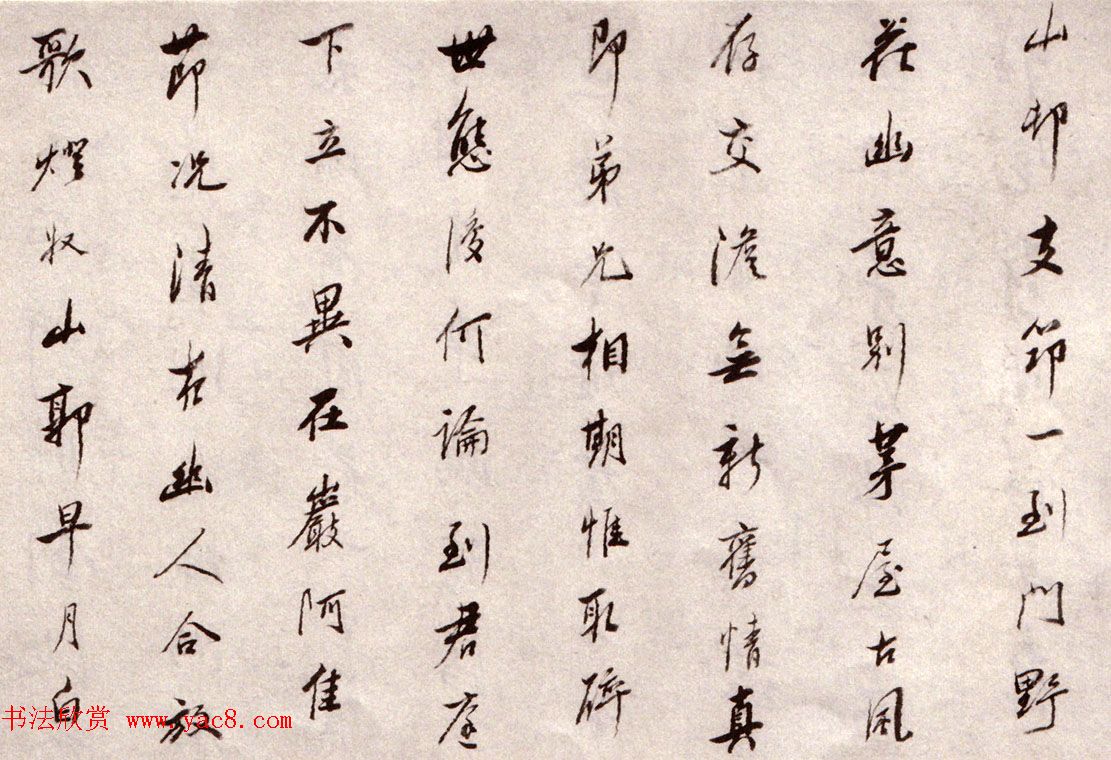 山邨支筇一到門野
莊幽意別茅屋古風
存交澹無新舊情真
即弟兄相期惟取醉
世態復何論到君庭
下立不異在巖阿佳
節況清夜幽人合放
歌燈收山郭早月白
书法欣赏 www.yac8.com